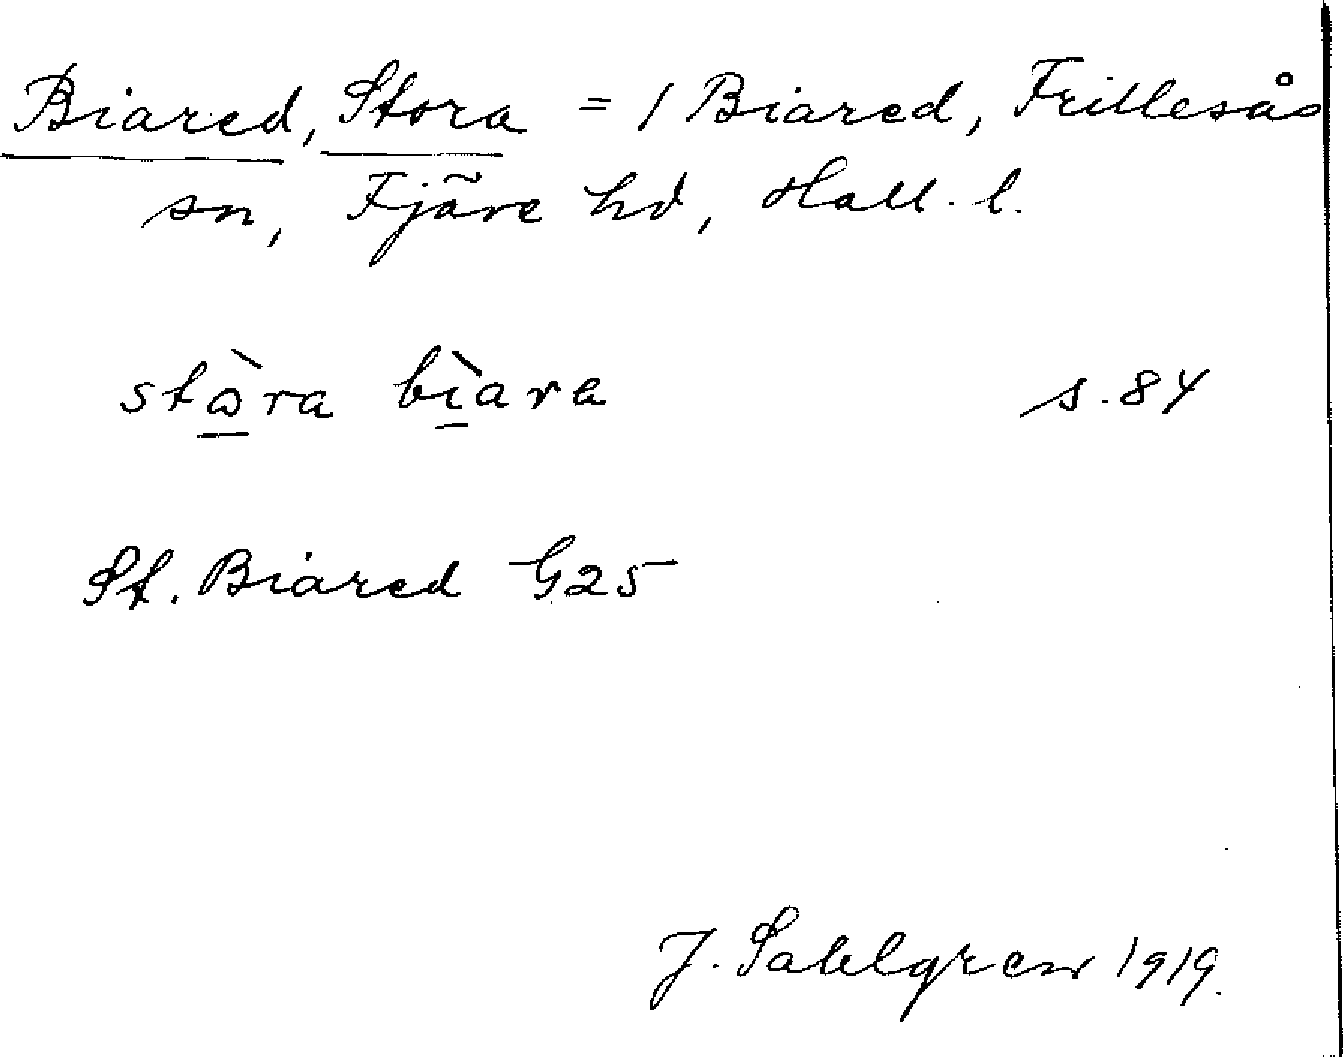 Biared, Stora = 1 Biared, Frillesås
sn, Fjäre hd, Hall. l.
stɷ̀ra bìara s. 84
St. Biared G25
J. Sahlgren 1919.